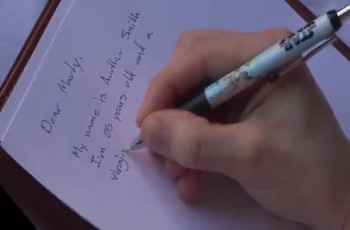 Dear Mandy,
My name is Arthur Smith
I'm 25 years old and a
virgin